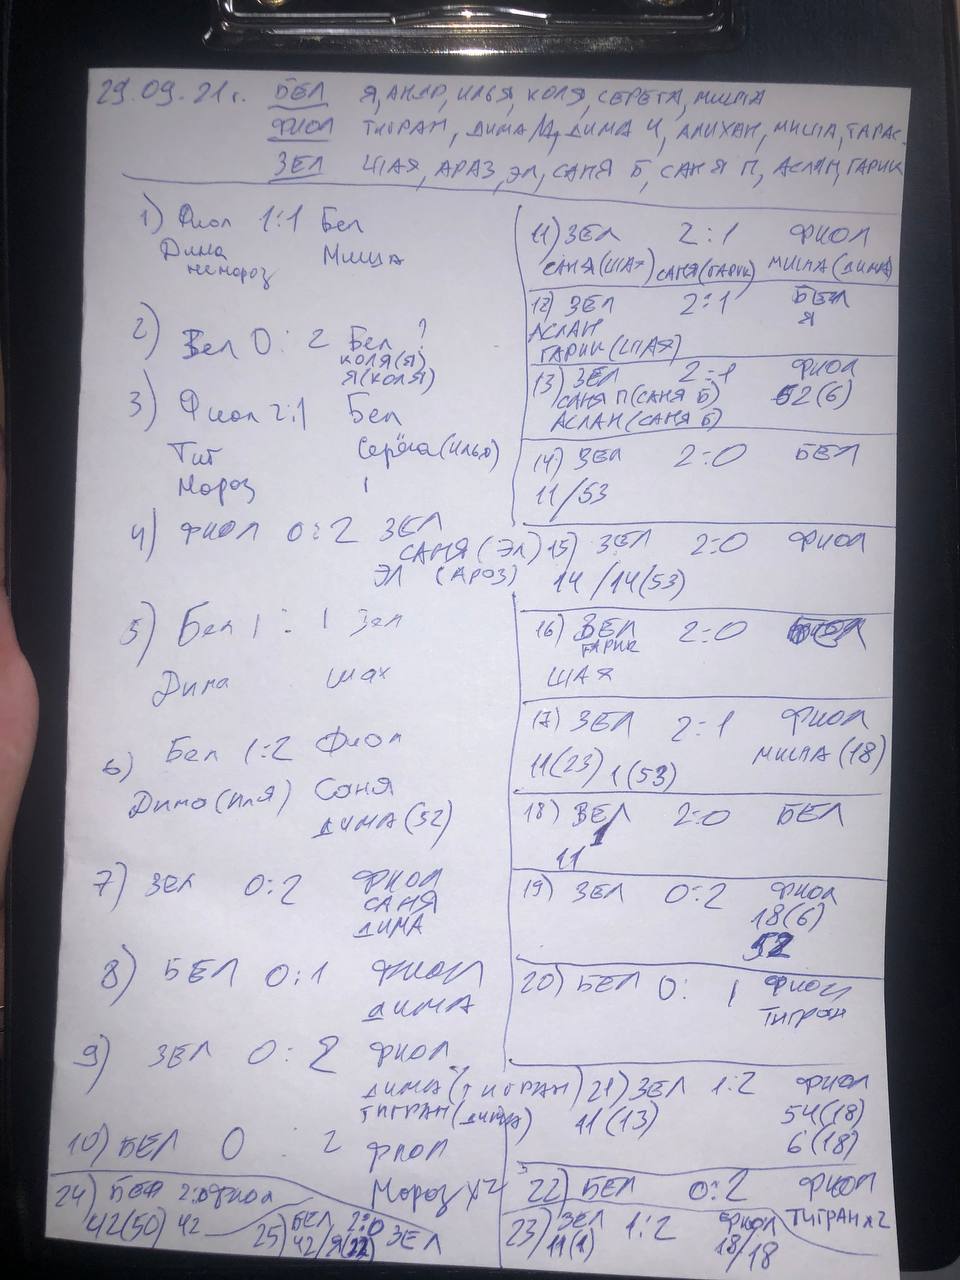 29.09.21г. БЕЛ Я, АНДР, ИЛЬЯ, КОЛЯ, СЕРЕГА, МИША
ФИОЛ ТИГРАН, ДИМА М, ДИМА Ч, АЛИХАН, МИША, ТАРАС
ЗЕЛ ШАЯ, АРАЗ, ЭЛ, САНЯ Б, САНЯ П, АСЛАН, ГАРИК
1) Фиол 1:1 Бел
Дима Миша
не мороз
2) Зел 0:2 Бел ?
КОЛЯ(Я)
Я(КОЛЯ)
3) Фиол 2:1 Бел
Тиг Серёга(Илья)
Мороз
4) ФИОЛ 0:2 ЗЕЛ
САНЯ (ЭЛ)
ЭЛ (АРОЗ)
5) Бел 1:1 Зел
Дима шах
6) Бел 1:2 Фиол
Дима(Иля) Саня
ДИМА(52)
7) ЗЕЛ 0:2 ФИОЛ
САНЯ
ДИМА
8) БЕЛ 0:1 ФИОЛ
ДИМА
9) ЗЕЛ 0:2 ФИОЛ
ДИМА (ТИГРАН)
ТИГРАН(ДИМА)
10) БЕЛ 0:2 ФИОЛ
Мороз х2
24) БЕЛ 2:0 Фиол
42(50) 42
25) БЕЛ 2:0 ЗЕЛ
42/Я(22)
11) ЗЕЛ 2:1 ФИОЛ
САНЯ(ШАЯ) САНЯ(ГАРИК) МИША(ДИМА)
12) ЗЕЛ 2:1 БЕЛ
АСЛАН Я
ГАРИК(ШАЯ)
13) ЗЕЛ 2:1 ФИОЛ
САНЯ П(САНЯ Б) 52(6)
АСЛАН(САНЯ Б)
14) ЗЕЛ 2:0 БЕЛ
11/53
15) ЗЕЛ 2:0 ФИОЛ
14/14(53)
16) ЗЕЛ 2:0 БЕЛ
ГАРИК
ШАЯ
17) ЗЕЛ 2:1 ФИОЛ
11(23) 1(53) МИША(18)
18) ЗЕЛ 2:0 БЕЛ
11 1
19) ЗЕЛ 0:2 ФИОЛ
18(6)
52
20) БЕЛ 0:1 ФИОЛ
ТИГРАН
21) ЗЕЛ 1:2 ФИОЛ
11(13) 54(18)
6(18)
22) БЕЛ 0:2 ФИОЛ
ТИГРАН х2
23) ЗЕЛ 1:2 ФИОЛ
11(1) 18/18